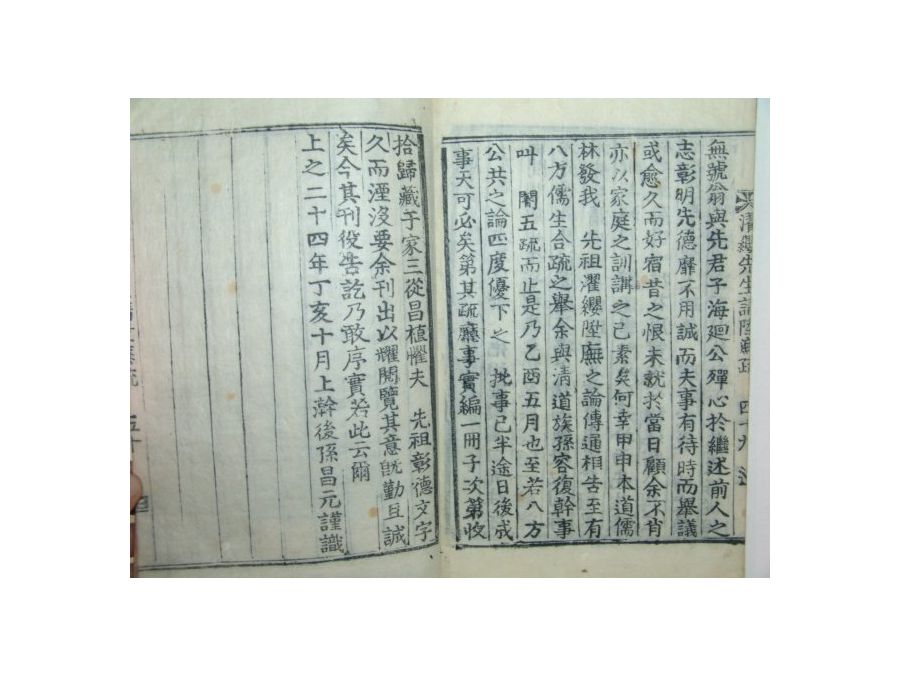 濯纓先生請陞廡疏 四十九
無號翁與先君子海廻公殫心於繼述前人之
志彰明先德靡不用誠而夫事有待時而舉議
或愈久而好宿昔之恨未就於當日顧余不肖
亦以家庭之訓講之已素矣何幸甲申本道儒
林發我 先祖濯纓陞廡之論傳通相告至有
八方儒生合疏之舉余與清道族孫容復幹事
叫 閤五疏而止是乃乙酉五月也至若八方
公共之論四度優下之 批事已半途日後成
事天可必矣第其疏廳事實編一冊子次第收
拾歸藏于家三從昌植懼夫 先祖彰德文字
久而湮沒要余刊出以耀閱覽其意旣勤且誠
矣今其刊役告訖乃敢序實若此云爾
上之二十四年丁亥十月上澣後孫昌元謹識